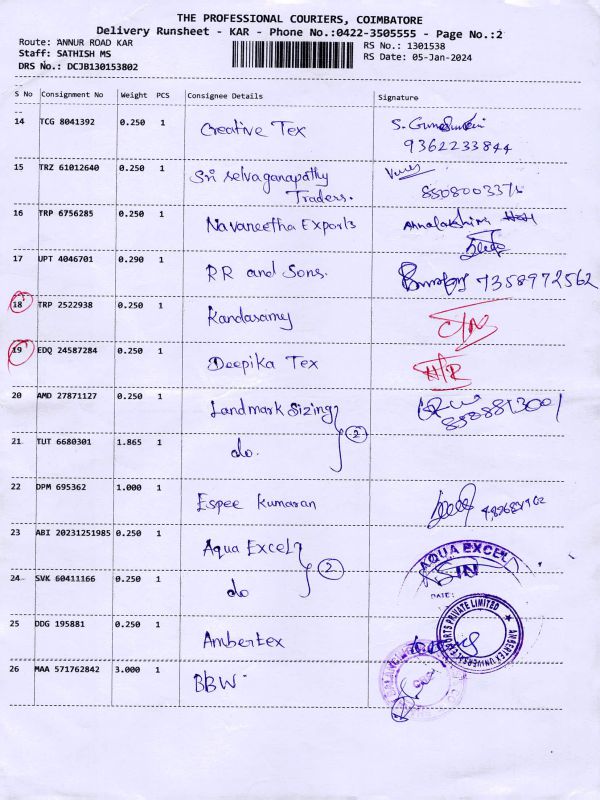 THE PROFESSIONAL COURIERS, COIMBATORE
Delivery Runsheet - KAR - Phone No.:0422-3505555 - Page No.:2
Route: ANNUR ROAD KAR RS No.: 1301538
Staff: SATHISH MS RS Date: 05-Jan-2024
DRS No.: DCJB130153802
S No Consignment No Weight PCS Consignee Details Signature
14 TCG 8041392 0.250 1 Creative Tex
9362233844
15 TRZ 61012640 0.250 1 Sri Selvaganapathy
Traders.
16 TRP 6756285 0.250 1 Navaneetha Exports
17 UPT 4046701 0.290 1 RR and Sons. 7358972562
18 TRP 2522938 0.250 1 Kandasamy
19 EDQ 24587284 0.250 1 Deepika Tex
20 AMD 27871127 0.250 1 Landmark Sizing
2
21 TUT 6680301 1.865 1 do.
22 DPM 695362 1.000 1 Espee Kumaran
23 ABI 20231251985 0.250 1 Aqua Excel AQUA EXCEL
2
24 SVK 60411166 0.250 1 do
DATE:
25 DDG 195881 0.250 1 Ambertex AMBERTEX UNIVERSAL EXPORTS PRIVATE LIMITED
26 MAA 571762842 3.000 1 BBW